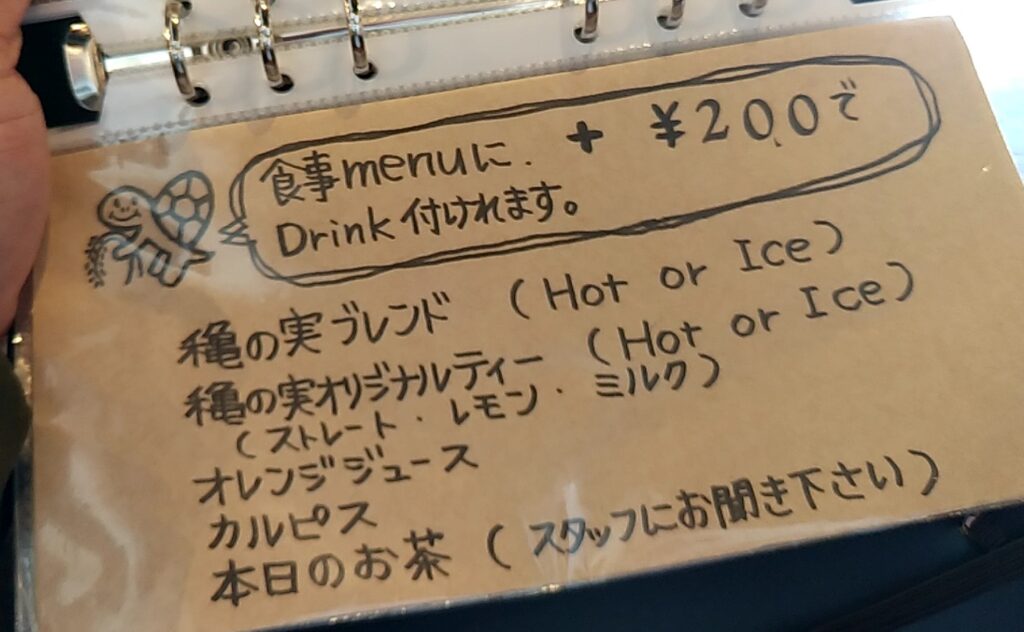 食事menuに. + ¥200で
Drink付けれます。
穐の実ブレンド (Hot or Ice)
穐の実オリジナルティー (Hot or Ice)
(ストレート・レモン・ミルク)
オレンジジュース
カルピス
本日のお茶 (スタッフにお聞き下さい)